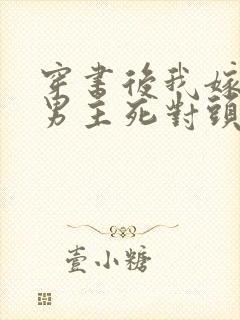 穿書後我嫁
男主死對頭
壹小糖